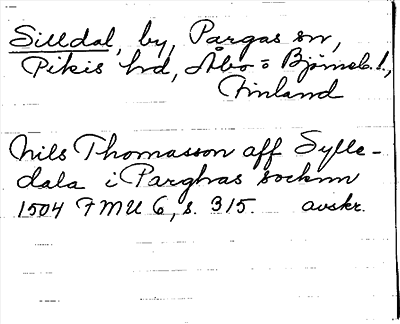 Silldal, by, Pargas sn,
Pikis hd, Åbo o Björneb. l.,
Finland
Nils Thomasson aff Sylle-
dala i Parghas socknn
1504 FMU 6, s. 315. avskr.